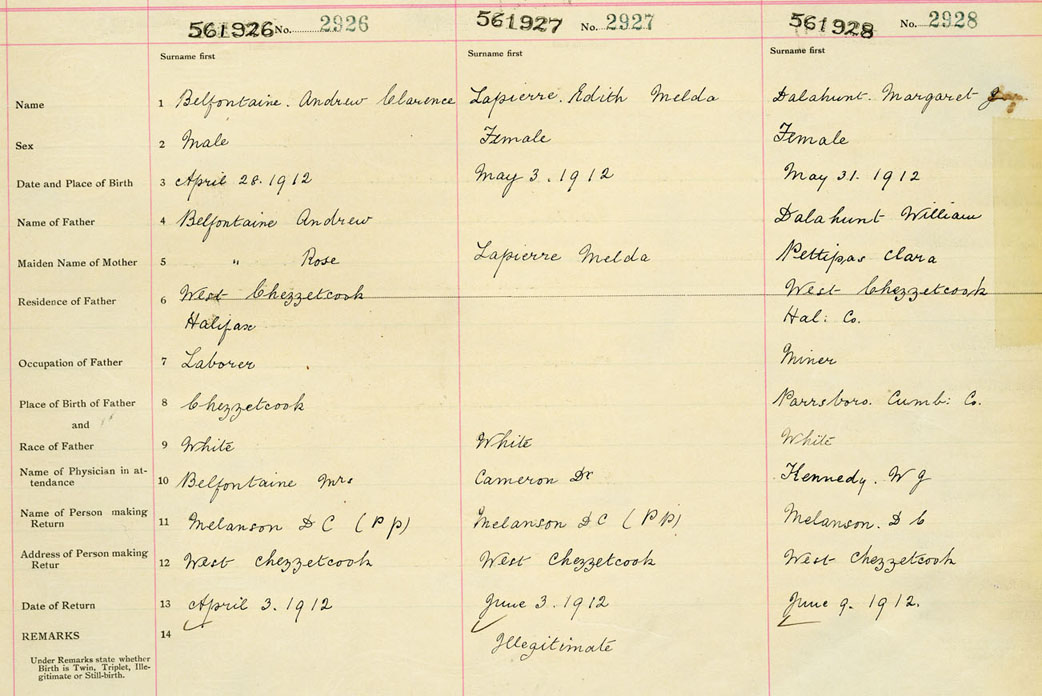 561926 No. 2926 561927 No. 2927 561928 No. 2928
Surname first Surname first Surname first
Name 1 Belfontaine. Andrew Clarence Lapierre. Edith Melda Dalahunt. Margaret J
Sex 2 Male Female Female
Date and Place of Birth 3 April 28. 1912 May 3. 1912 May 31. 1912
Name of Father 4 Belfontaine Andrew Dalahunt William
Maiden Name of Mother 5 " Rose Lapierre Melda Pettipas Clara
Residence of Father 6 West Chezzetcook West Chezzetcook
Halifax Hal: Co.
Occupation of Father 7 Laborer Miner
Place of Birth of Father 8 Chezzetcook Parrsboro. Cumb: Co.
and
Race of Father 9 White White White
Name of Physician in at-
tendance 10 Belfontaine Mrs Cameron Dr Kennedy. W J
Name of Person making
Return 11 Melanson D C (P P) Melanson D C (P P) Melanson. D C
Address of Person making
Retur 12 West Chezzetcook West Chezzetcook West Chezzetcook
Date of Return 13 April 3. 1912 June 3. 1912 June 9. 1912.
REMARKS 14 Illegitimate
Under Remarks state whether
Birth is Twin, Triplet, Ille-
gitimate or Still-birth.